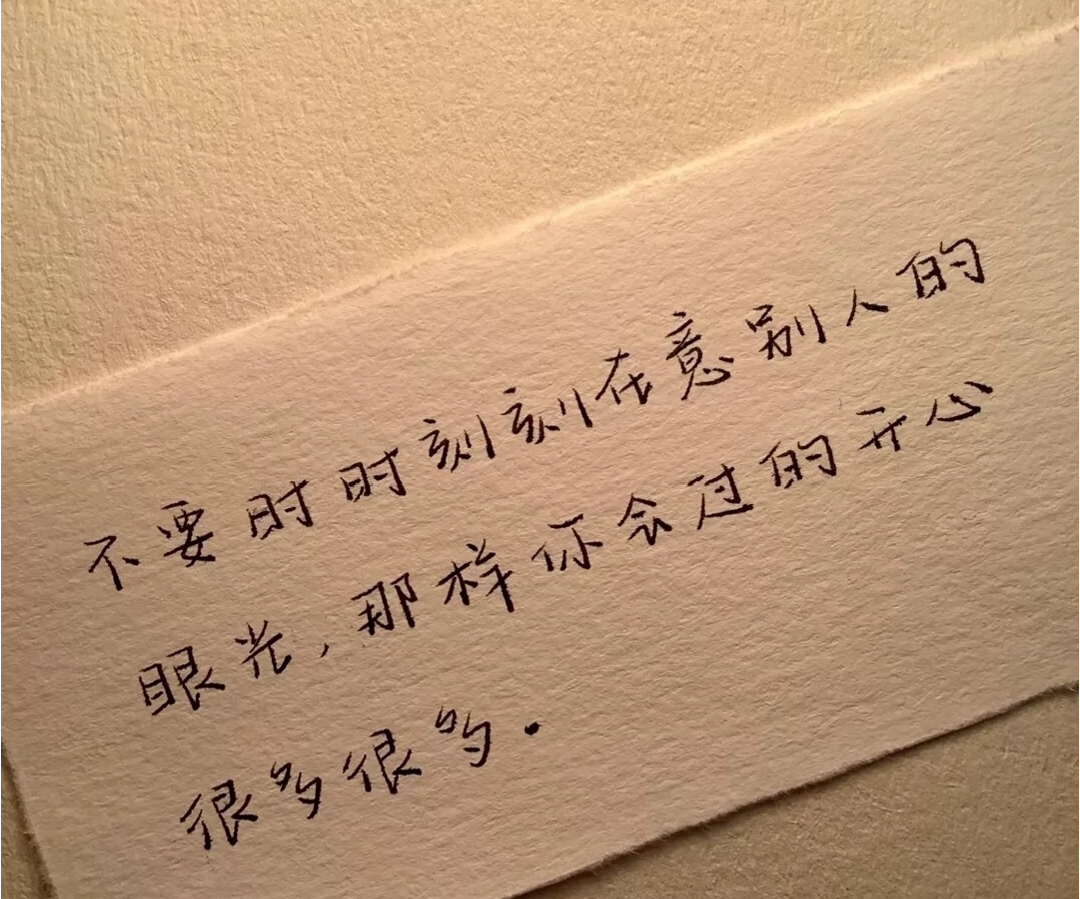 不要时时刻刻在意别人的
眼光,那样你会过的开心
很多很多.